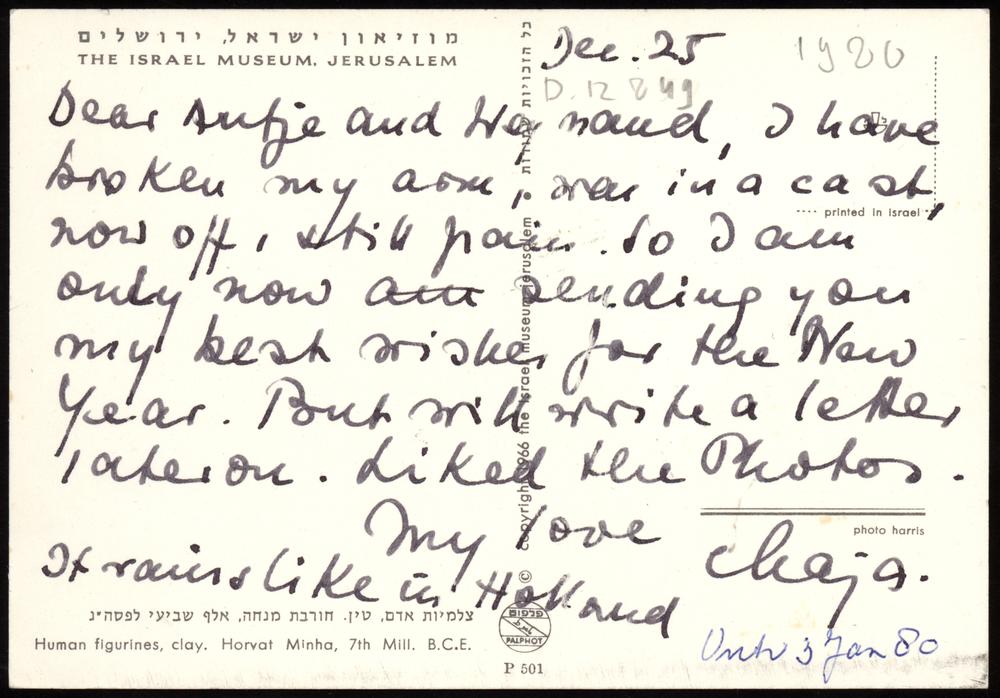 מוזיאון ישראל, ירושלים
THE ISRAEL MUSEUM, JERUSALEM
Dec. 25
1980
D. 12 849
Dear Antje and Weynand, I have
broken my arm, was in a cast,
now off, still pain. So I am
only now am sending you
my best wishes for the New
Year. But will write a letter
later on. Liked the Photos.
My love
Chaja.
It rains like in Holland
printed in israel
כל הזכויות שמורות • copyright 1966 the israel museum jerusalem ©
photo harris
צלמיות אדם, טין. חורבת מנחה, אלף שביעי לפסה״נ
Human figurines, clay. Horvat Minha, 7th Mill. B.C.E.
פלפוט
PALPHOT
P 501
Ontv 3 Jan 80